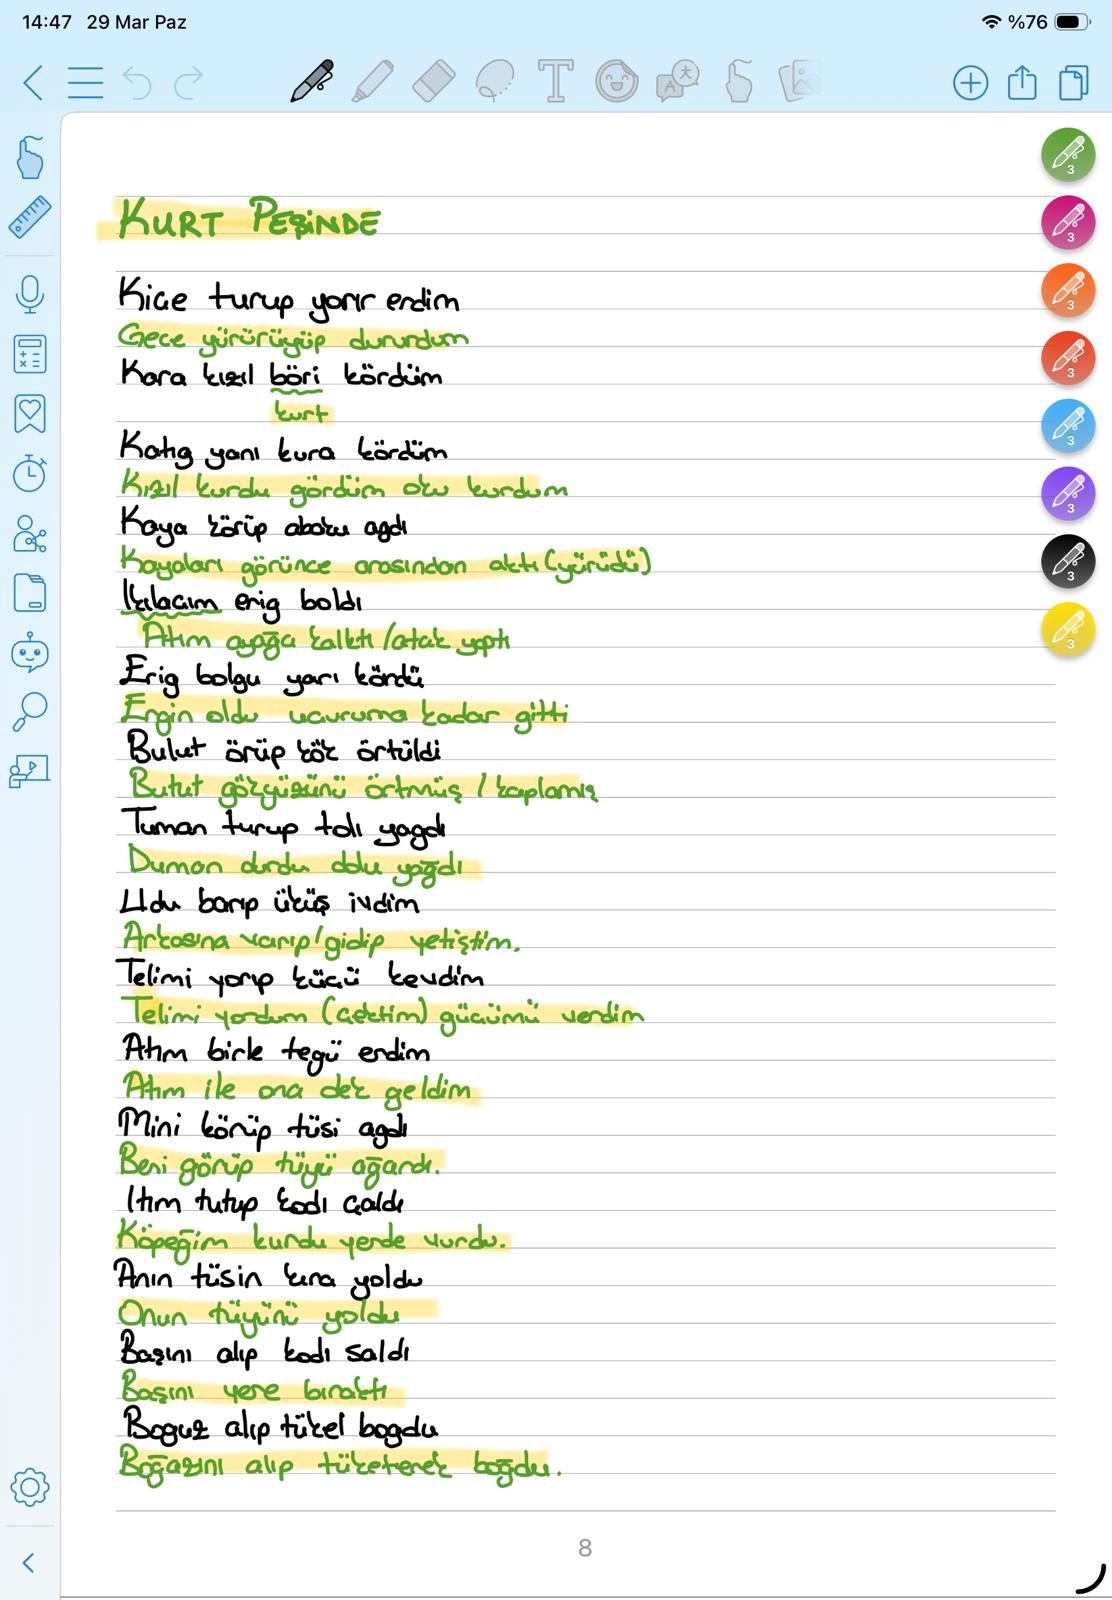 14:47 29 Mar Paz %76
KURT PEŞİNDE
Kice turup yorır erdim
Gece yürürüyüp dururdum
Kara kızıl böri kördüm
kurt
Katıg yanı kura kördüm
Kızıl kurdu gördüm oku kurdum
Kaya körüp abaku agdı
Kayaları görünce arasından aktı (yürüdü)
Ikılacım erig boldı
Atım ayağa kalktı / atak yaptı
Erig bolgu yarı kördü
Ergin oldu uçuruma kadar gitti
Bulut örüp kök örtüldi
Bulut gökyüzünü örtmüş / kaplamış
Tuman turup tolı yagdı
Duman durdu dolu yağdı
Udu barıp üküş ivdim
Arkasına varıp/gidip yetiştim.
Telimi yorıp küçü kevdim
Telimi yordum (çektim) gücümü verdim
Atım birle tegü erdim
Atım ile ona dek geldim
Mini körüp tüsi agdı
Beni görüp tüyü ağardı.
Itım tutup kodı çaldı
Köpeğim kurdu yerde vurdu.
Anın tüsin kıra yoldu
Onun tüyünü yoldu
Başını alıp kodı saldı
Başını yere bıraktı
Boguz alıp tükel bogdu
Boğazını alıp tüketerek boğdu.
8
3
3
3
3
3
3
3
3